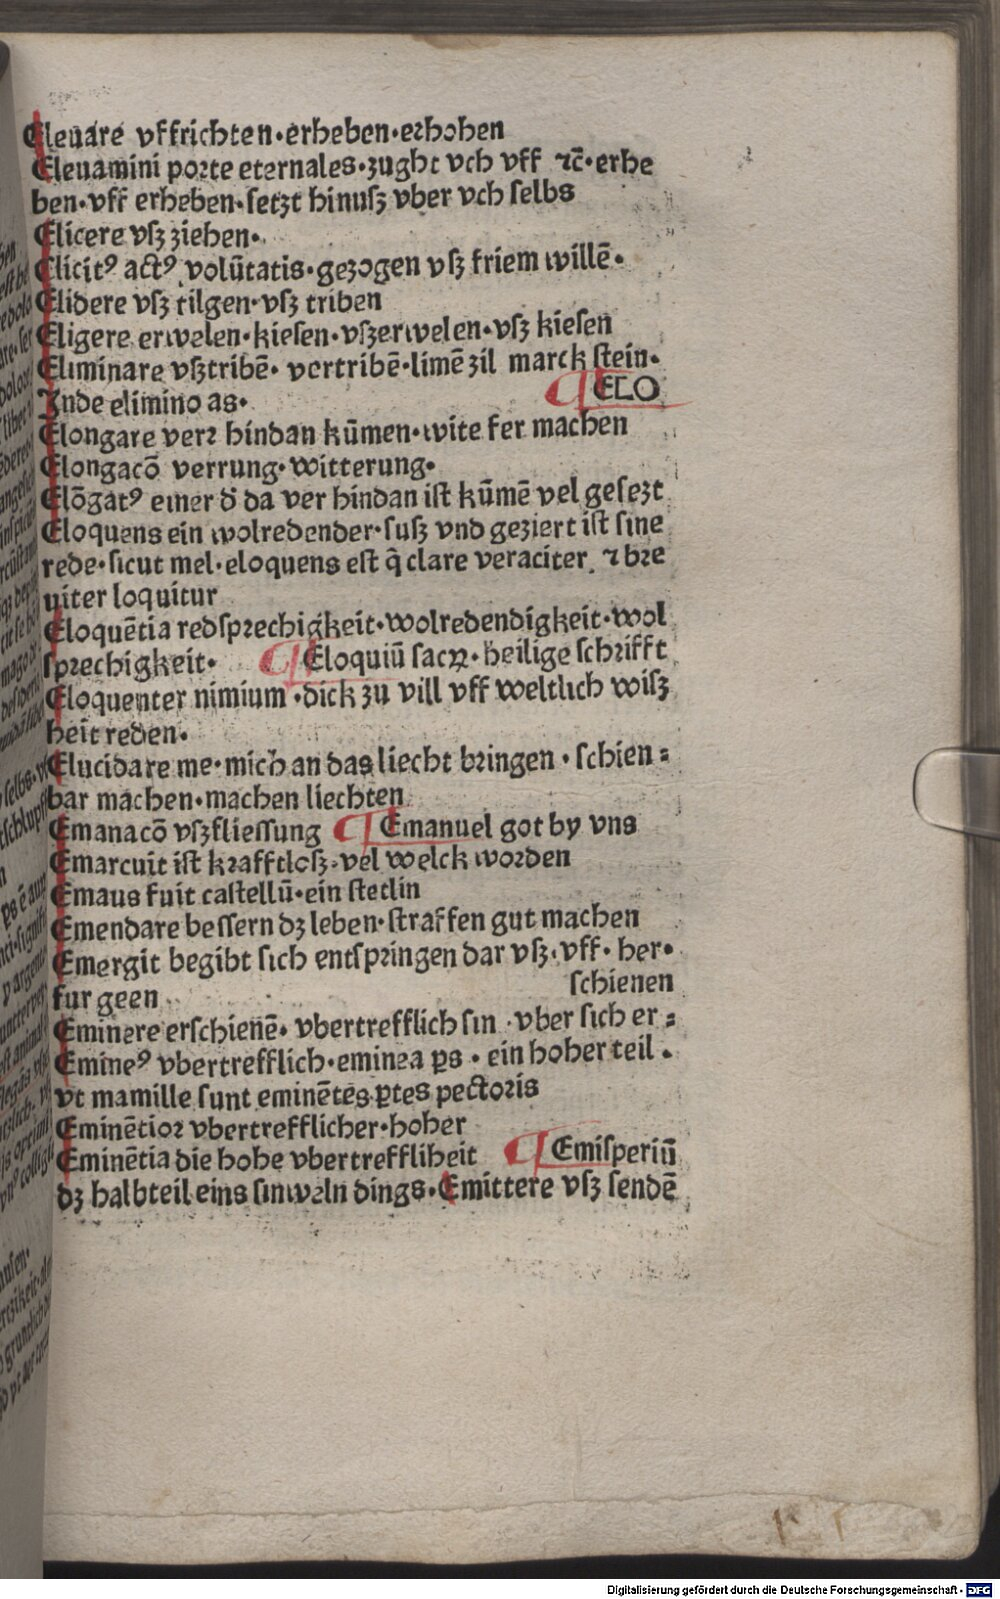 Eleuare vffrichten·erheben·erhohen
Eleuamini porte eternales·zught vch vff ⁊c̄·erhe
ben·vff erheben·setzt hinusz vber vch selbs
Elicere vsz ziehen·
Elicitꝰ actꝰ volūtatis·gezogen vsz friem willē·
Elidere vsz tilgen·vsz triben
Eligere erwelen·kiesen·vszerwelen·vsz kiesen
Eliminare vsztribē· vertribē·limē zil marck stein·
Inde elimino as· ¶ ELO
Elongare verr hindan kūmen·wite fer machen
Elongacō verrung·witterung·
Elōgatꝰ einer d̄ da ver hindan ist kūmē vel gesezt
Eloquens ein wolredender·susz vnd geziert ist sine
rede·sicut mel·eloquens est q̄ clare veraciter ⁊ bre
uiter loquitur
Eloquētia redsprechigkeit·wolredendigkeit·wol
sprechigkeit· ¶ Eloquiū sacꝝ·heilige schrifft
Eloquenter nimium·dick zu vill vff weltlich wisz
heit reden·
Elucidare me·mich an das liecht bringen·schien⸗
bar machen·machen liechten
Emanacō vszfliessung ¶ Emanuel got by vns
Emarcuit ist krafftlosz·vel welck worden
Emaus fuit castellū·ein stetlin
Emendare bessern dz leben·straffen gut machen
Emergit begibt sich entspringen dar vsz·vff·her·
fur geen schienen
Eminere erschienē·vbertrefflich sin·vber sich er⸗
Emineꝰ vbertrefflich·eminea ꝑs·ein hoher teil·
vt mamille sunt eminētes ꝑtes pectoris
Eminētior vbertrefflicher·hoher
Eminētia die hohe vbertreffliheit ¶ Emisperiū
dz halbteil eins sinweln dings·Emittere vsz sendē
Digitalisierung gefördert durch die Deutsche Forschungsgemeinschaft · DFG